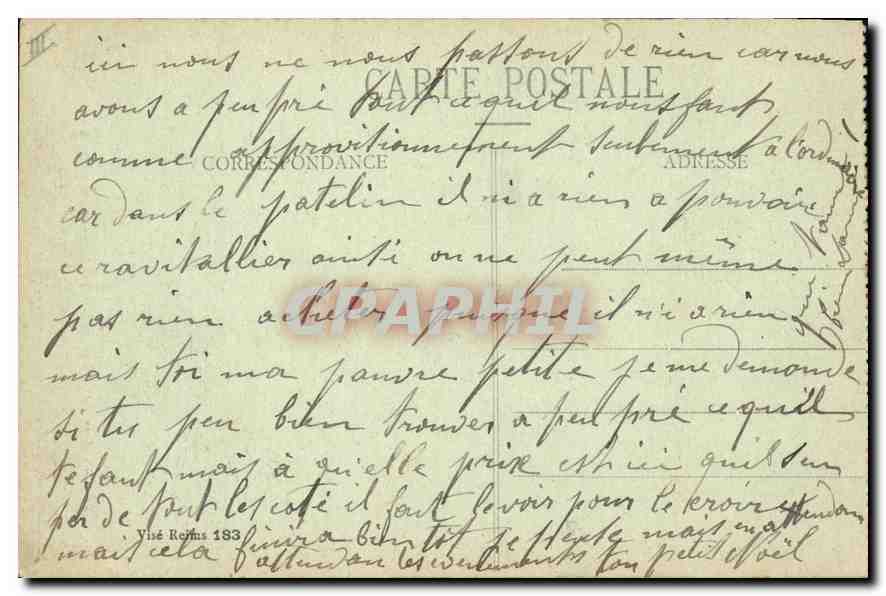 III
ici nous ne nous passons de rien car nous
CARTE POSTALE
avons a peu pré tout ce quil nous faut
comme approvitionnement seulement a l'ordinaire
CORRESPONDANCE
ADRESSE
car dans le patelin il ni a rien a pouvoir
ce ravitallier ainti on ne peut même
pas rien acheter puisque il ni a rien
CPAPHIL
mais toi ma pauvre petite je me demande
si tu peu bien trouver a peu pré ce quil
te faut mais à qu'elle prix et ici quil sen
per de tout les coté il faut le voir pour le croire
Visé Reims 183
mais cela finira bien tot je pense mais en attendan
attendan les evenements ton petit Noël
qui